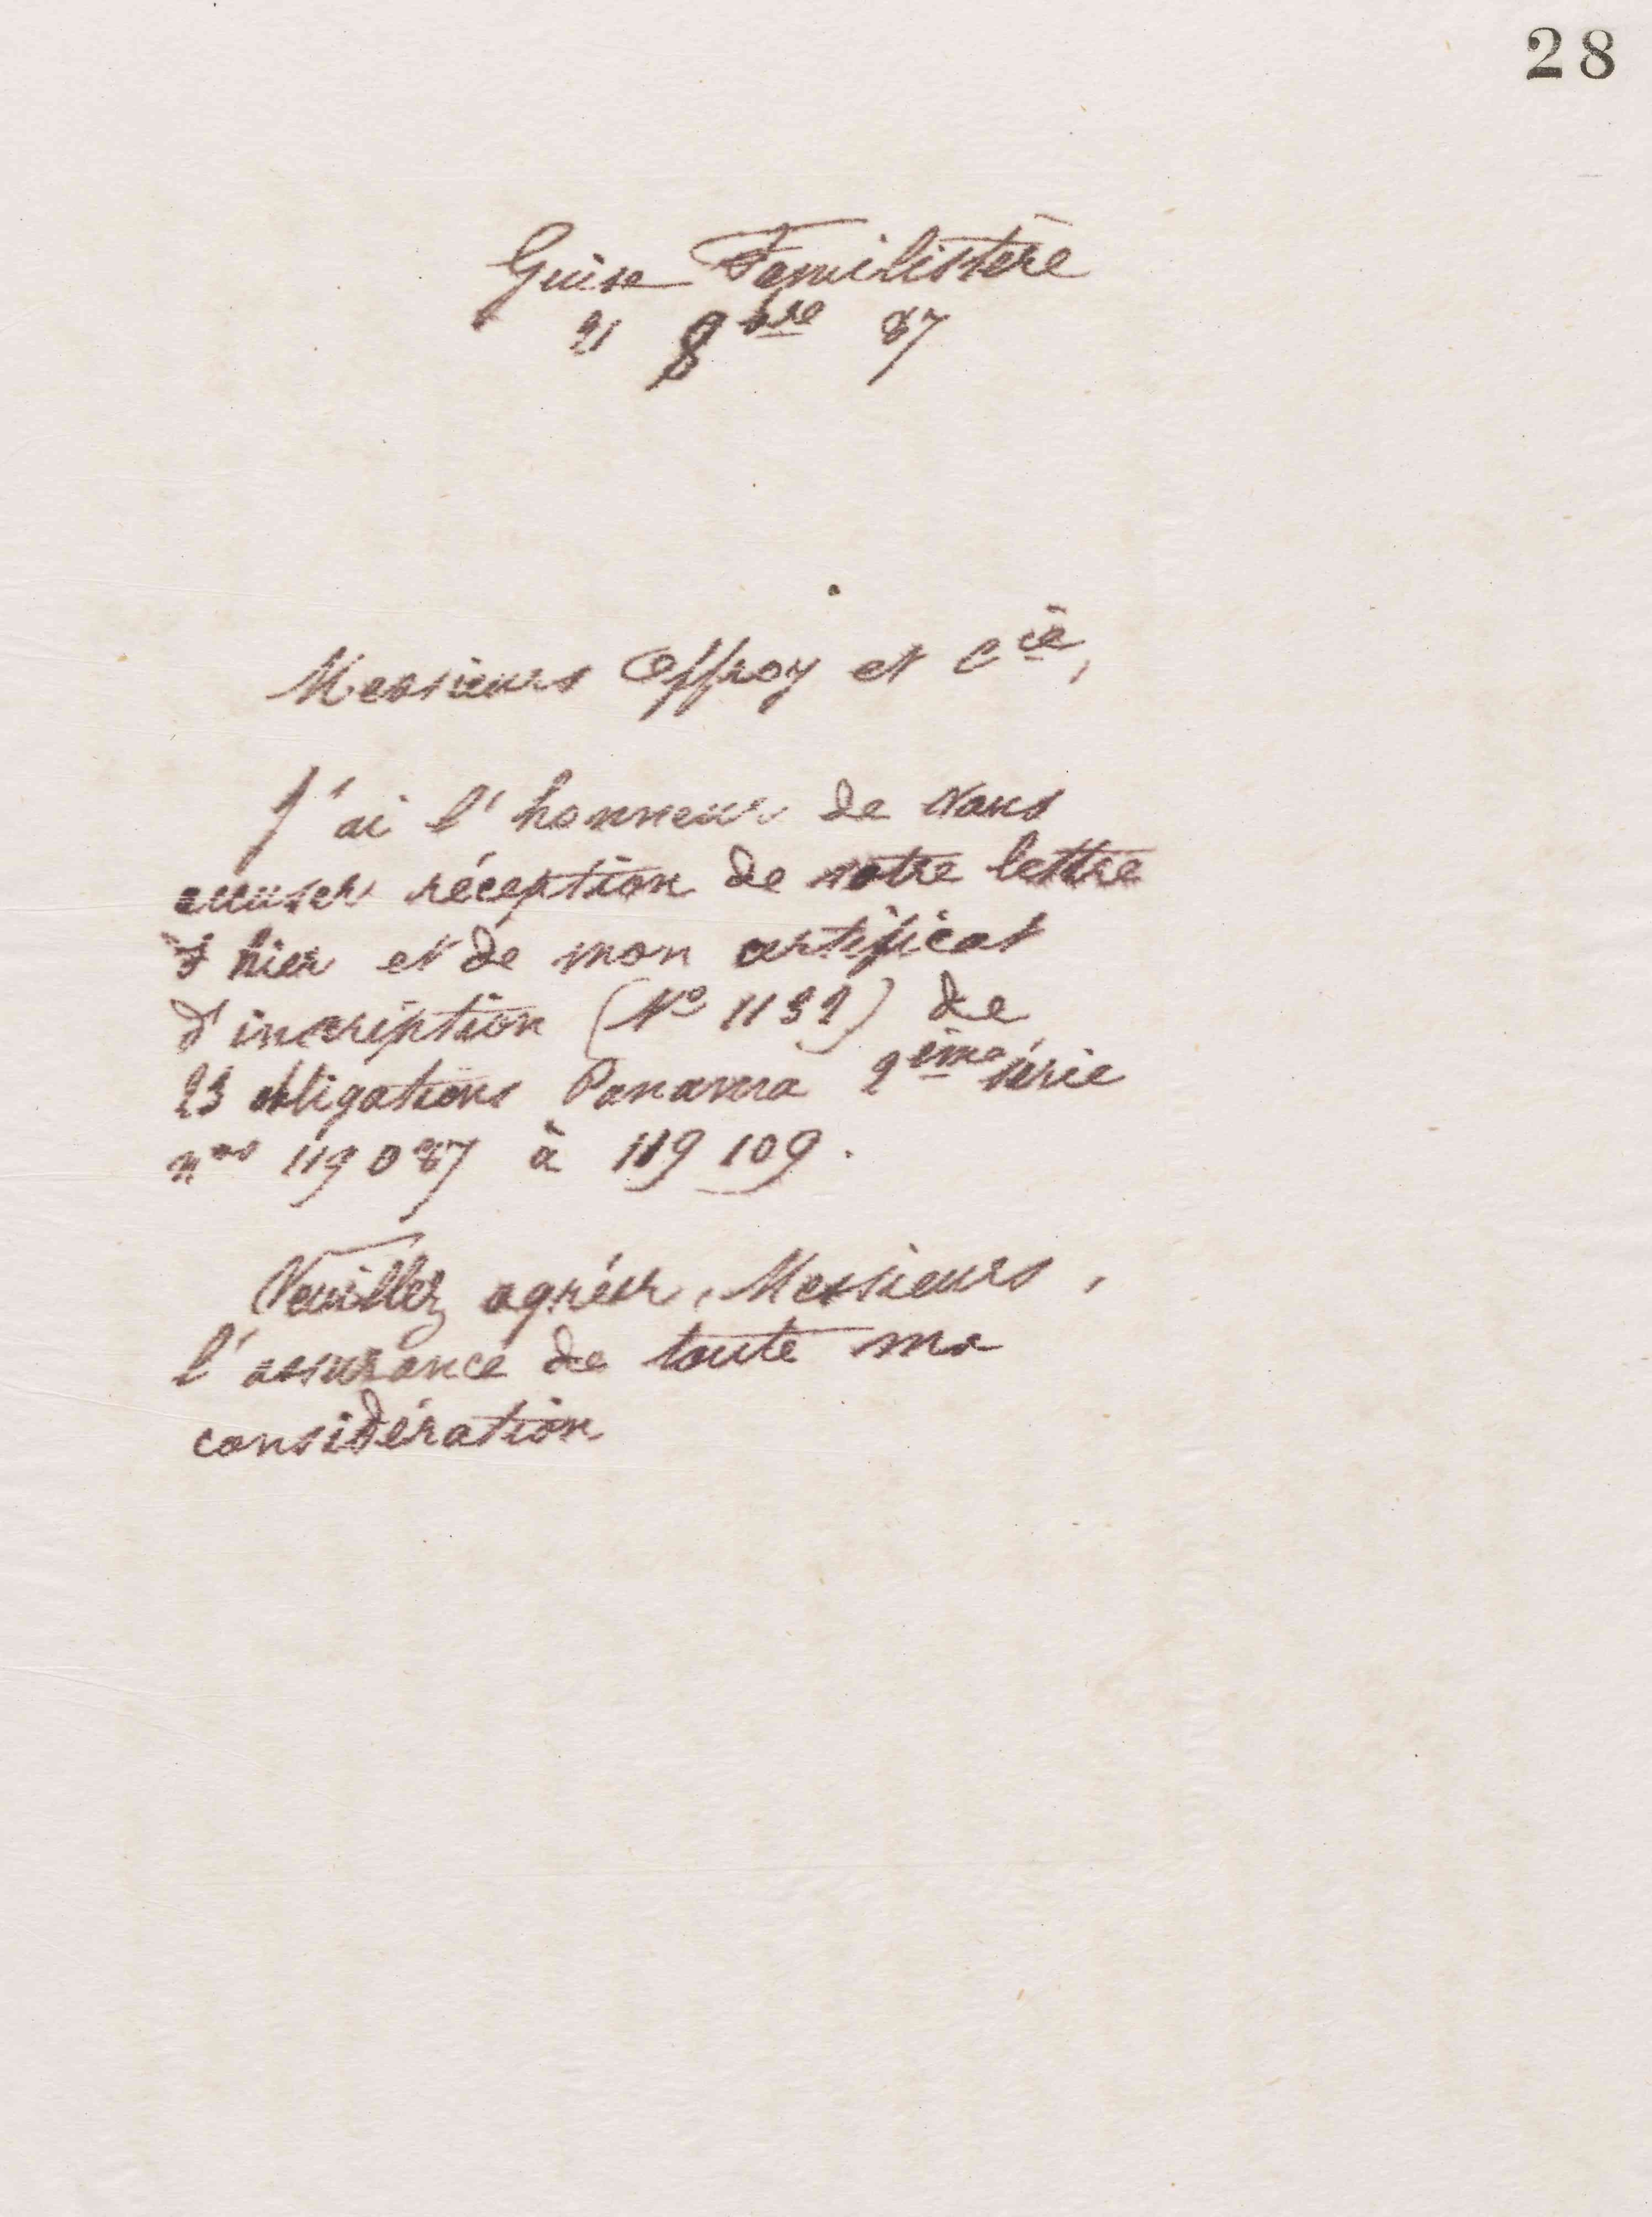 28
Guise Familistère
21 8bre 87
Messieurs Offroy et Cie,
J'ai l'honneur de vous
accuser réception de votre lettre
d'hier et de mon certificat
d'inscription (No 1132) de
23 obligations Panama 2ème série
nos 119087 à 119109.
Veuillez agréer, Messieurs,
l'assurance de toute ma
considération